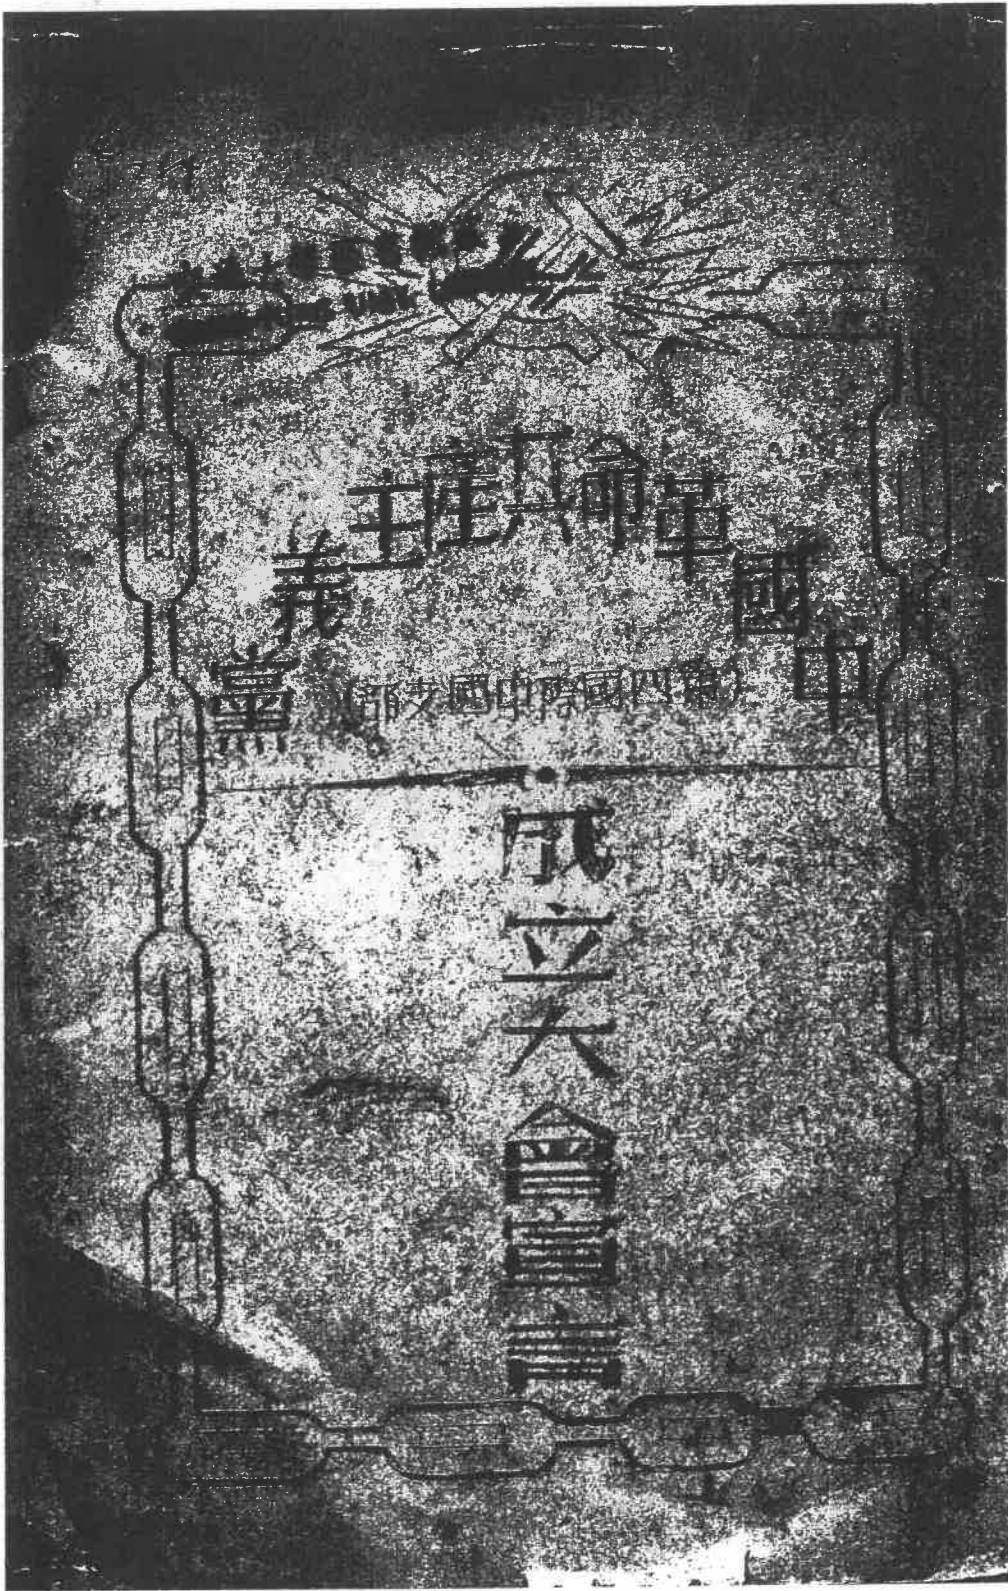 中國革命共產主義黨
(第四國際中國支部)
成立大會宣言